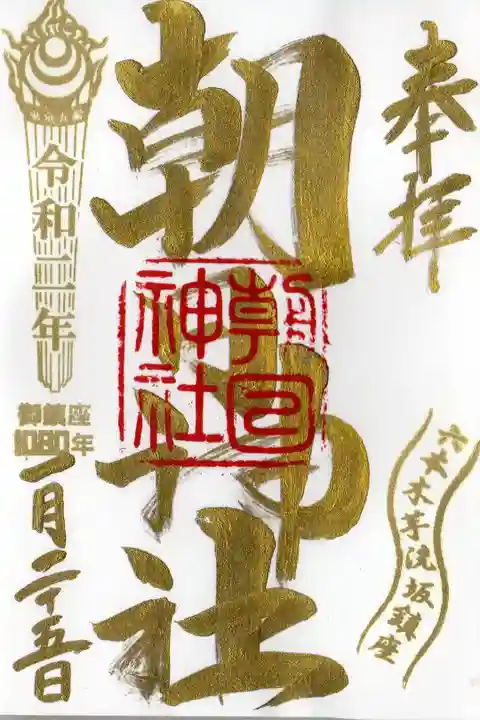 奉拝
六本木芋洗坂鎮座
朝日神社
朝日神社
令和二年
御鎮座
1080年
一月二十五日